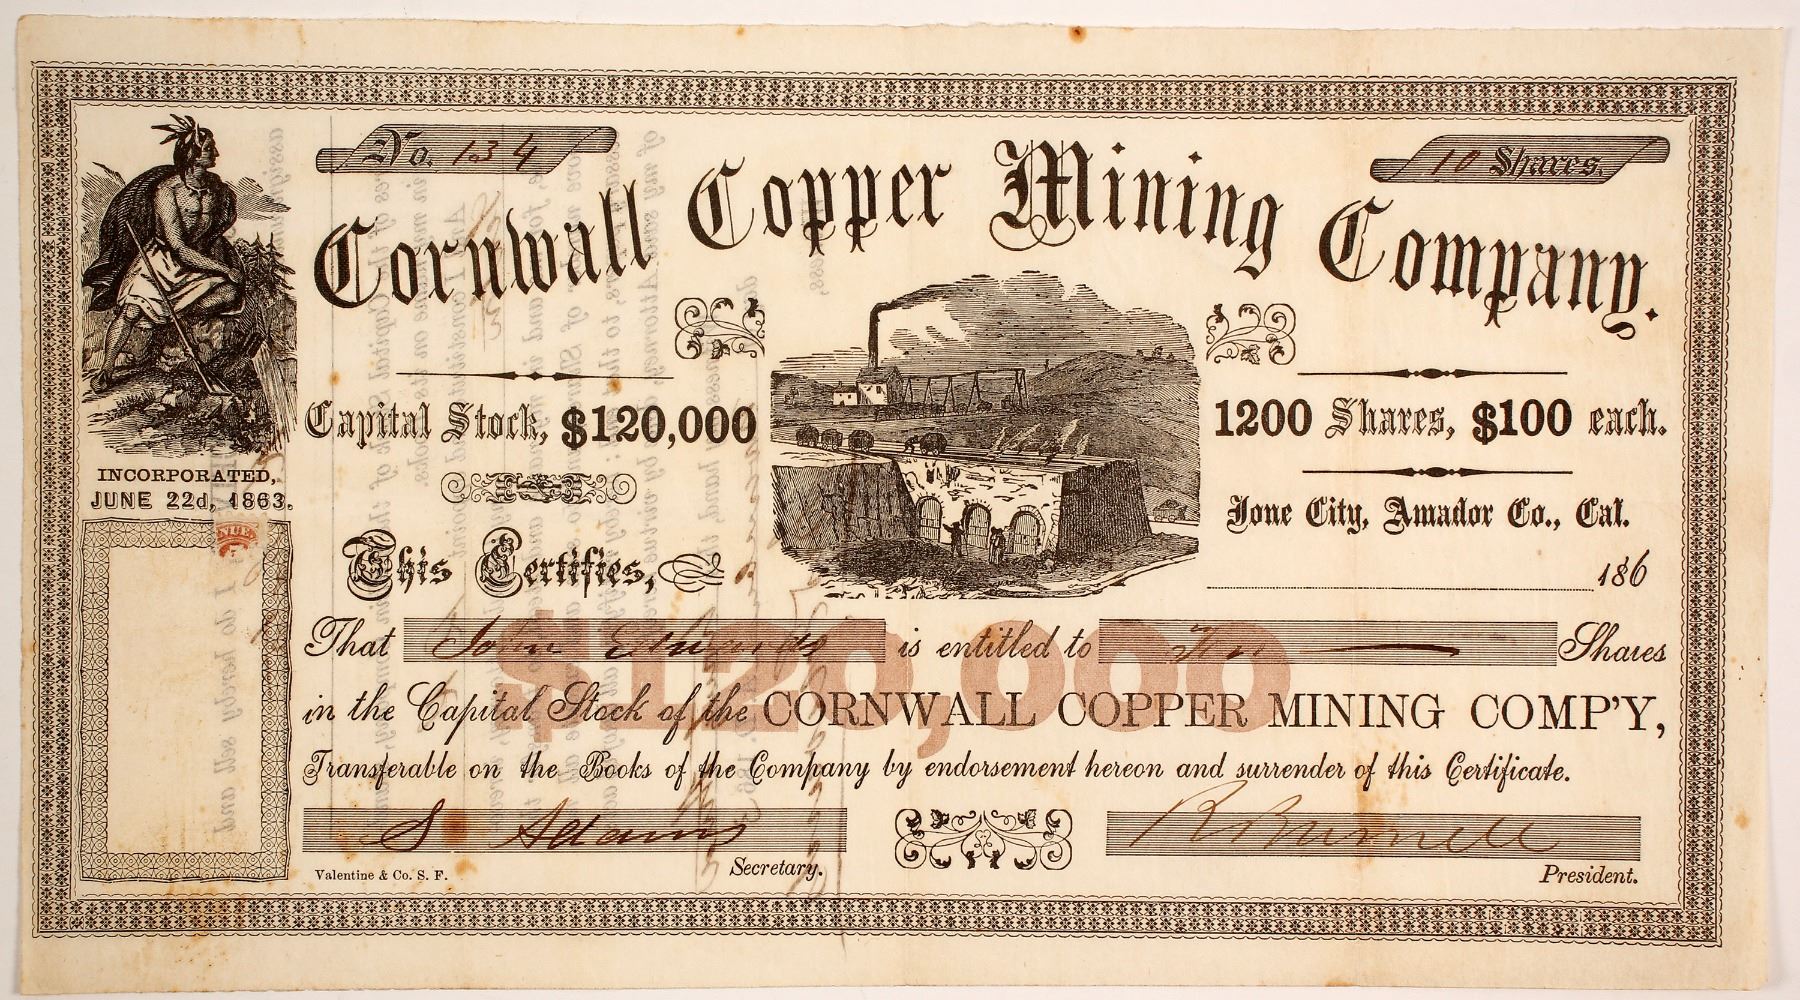 No. 134
10 Shares.
Cornwall Copper Mining Company.
Capital Stock, $120,000
1200 Shares, $100 each.
INCORPORATED,
JUNE 22d, 1863.
Ione City, Amador Co., Cal.
This Certifies,
186
That John Edwards is entitled to Ten Shares
$120,000
in the Capital Stock of the CORNWALL COPPER MINING COMP'Y,
Transferable on the Books of the Company by endorsement hereon and surrender of this Certificate.
S. Adams
R Burnell
Valentine & Co. S. F.
Secretary.
President.